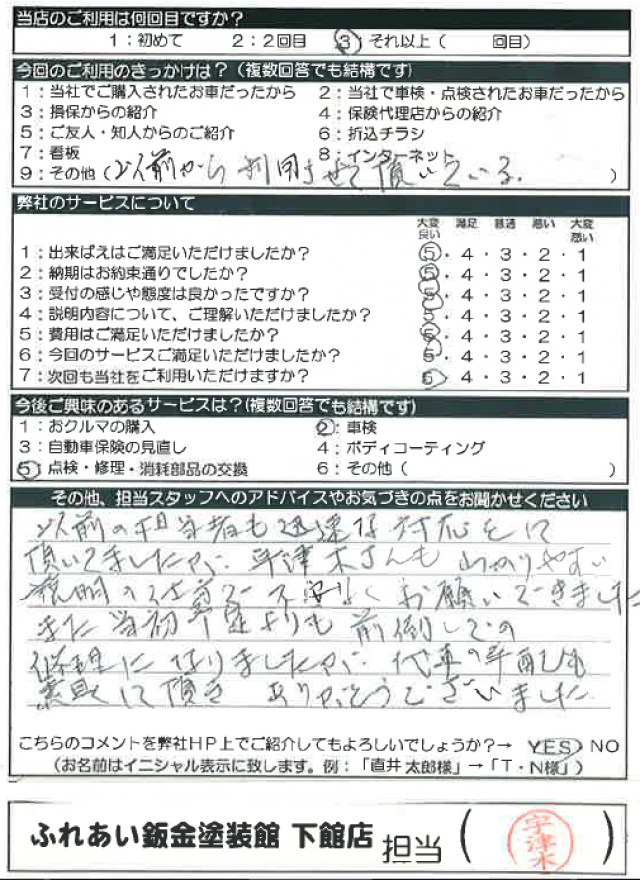 当店のご利用は何回目ですか?
1:初めて 2:2回目 3:それ以上( 回目)
今回のご利用のきっかけは?(複数回答でも結構です)
1:当社でご購入されたお車だったから 2:当社で車検・点検されたお車だったから
3:損保からの紹介 4:保険代理店からの紹介
5:ご友人・知人からのご紹介 6:折込チラシ
7:看板 8:インターネット
9:その他(以前から利用させて頂いている。)
弊社のサービスについて
大変良い 満足 普通 悪い 大変悪い
1:出来ばえはご満足いただけましたか? 5・4・3・2・1
2:納期はお約束通りでしたか? 5・4・3・2・1
3:受付の感じや態度は良かったですか? 5・4・3・2・1
4:説明内容について、ご理解いただけましたか? 5・4・3・2・1
5:費用はご満足いただけましたか? 5・4・3・2・1
6:今回のサービスご満足いただけましたか? 5・4・3・2・1
7:次回も当社をご利用いただけますか? 5・4・3・2・1
今後ご興味のあるサービスは?(複数回答でも結構です)
1:おクルマの購入 2:車検
3:自動車保険の見直し 4:ボディコーティング
5:点検・修理・消耗部品の交換 6:その他( )
その他、担当スタッフへのアドバイスやお気づきの点をお聞かせください
以前の担当者も迅速な対応をして
頂いてましたが、宇津木さんもわかりやすい
説明の お願いできました
また当初予定よりも前倒しでの
修理になりましたが、代車の手配も
して頂き ありがとうございました
こちらのコメントを弊社HP上でご紹介してもよろしいでしょうか?→ YES NO
(お名前はイニシャル表示に致します。例:「直井 太郎様」→「T・N様」)
ふれあい鈑金塗装館 下館店 担当(宇津木)